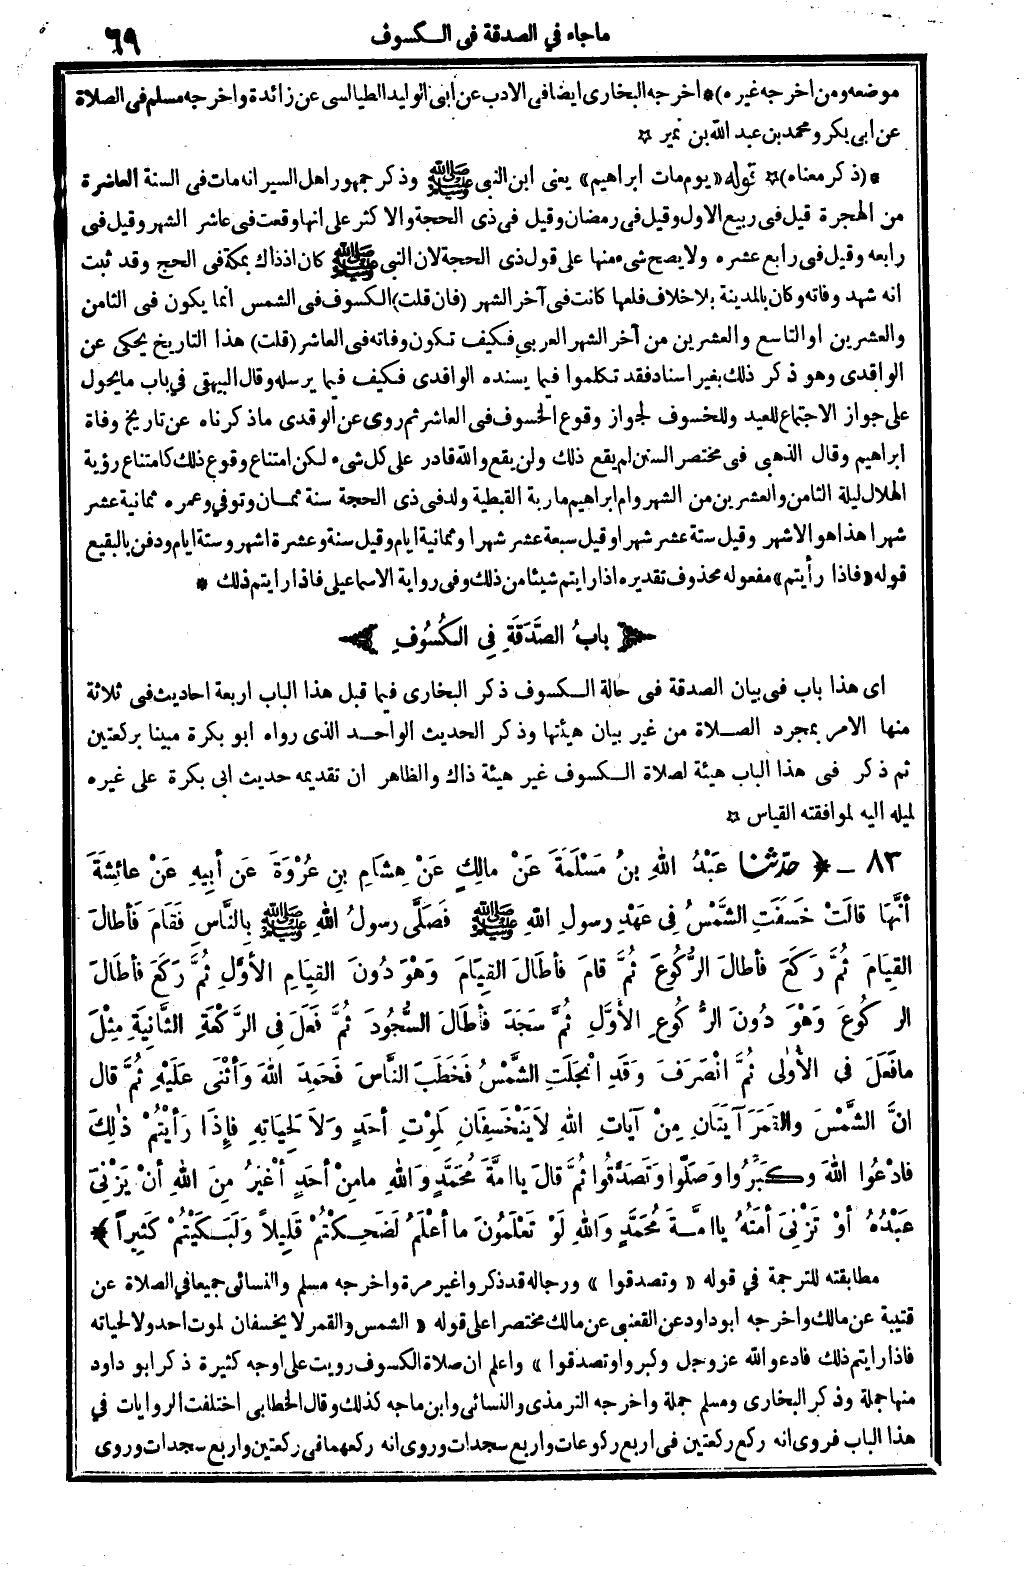 ماجاء في الصدقة فى الكسوف
٦٩
موضعه ومن اخرجه غيره)* اخرجه البخارى ايضا فى الادب عن أبى الوليد الطيالسى عن زائدة واخرجه مسلم فى الصلاة
عن ابى بكر ومحمد بن عبد الله بن نمير ☆
*(ذكر معناه)☆ قوله «يوم مات ابراهيم» يعنى ابن النبى ﷺ وذكر جمهور اهل السير انه مات فى السنة العاشرة
من الهجرة قيل فى ربيع الاول وقيل فى رمضان وقيل فى ذى الحجة والاكثر على انها وقعت فى عاشر الشهر وقيل فى
رابعه وقيل فى رابع عشره ولا يصح شىء منها على قول ذى الحجة لان النبى ﷺ كان اذذاك بمكة فى الحج وقد ثبت
انه شهد وفاته وكان بالمدينة بلاخلاف فلعلها كانت فى آخر الشهر (فان قلت) الكسوف فى الشمس انما يكون فى الثامن
والعشرين او التاسع والعشرين من آخر الشهر العربى فكيف تكون وفاته فى العاشر (قلت) هذا التاريخ يحكى عن
الواقدى وهو ذكر ذلك بغير اسناد فقد تكلموا فيما يسنده الواقدى فكيف فيما يرسله وقال البيهقى في باب ما يحول
على جواز الاجتماع للعيد وللخسوف لجواز وقوع الخسوف فى العاشر ثم روى عن الوقدى ماذكرناه عن تاريخ وفاة
ابراهيم وقال الذهبى فى مختصر السنن لم يقع ذلك ولن يقع والله قادر على كل شىء لكن امتناع وقوع ذلك كامتناع رؤية
الهلال ليلة الثامن والعشرين من الشهر وام ابراهيم مارية القبطية ولد فى ذى الحجة سنة ثمان وتوفي وعمره ثمانية عشر
شهرا هذا هو الاشهر وقيل ستة عشر شهرا وقيل سبعة عشر شهرا وثمانية ايام وقيل سنة وعشرة اشهر وستة ايام ودفن بالبقيع
قوله «فاذا رأيتم» مفعوله محذوف تقديره اذا رايتم شيئا من ذلك وفى رواية الاسماعيلى فاذا رايتم ذلك *
بابُ الصَّدَقَةِ فِى الكُسُوفِ
اى هذا باب فى بيان الصدقة فى حالة الكسوف ذكر البخارى فيما قبل هذا الباب اربعة احاديث فى ثلاثة
منها الامر بمجرد الصلاة من غير بيان هيئتها وذكر الحديث الواحد الذى رواه ابو بكرة مبينا بركعتين
ثم ذكر فى هذا الباب هيئة لصلاة الكسوف غير هيئة ذاك والظاهر ان تقديمه حديث ابى بكرة على غيره
لميله اليه لموافقته القياس ☆
٨٣ ـ ﴿ حدّثنا عَبْدُ اللهِ بنُ مَسْلَمَةَ عَنْ مالِكٍ عَنْ هِشَامِ بنِ عُرْوَةَ عَن أبِيهِ عَنْ عائِشَةَ
أنَّهَا قالَتْ خَسَفَتِ الشَّمْسُ فِى عَهْدِ رسولِ اللهِ ﷺ فَصَلَّى رسولُ اللهِ ﷺ بِالنَّاسِ فَقَامَ فَأطالَ
القِيَامَ ثُمَّ رَكَعَ فأطالَ الرُّكُوعَ ثُمَّ قامَ فأطَالَ القِيَامَ وَهْوَ دُونَ القِيَامِ الأوَّلِ ثُمَّ رَكَعَ فأطَالَ
الرُّكُوعَ وَهْوَ دُونَ الرُّكُوعِ الأوَّلِ ثُمَّ سَجَدَ فأطَالَ السُّجُودَ ثُمَّ فَعَلَ فِى الرَّكْعَةِ الثَّانِيَةِ مِثْلَ
مافَعَلَ فى الأُولَى ثُمَّ انْصَرَفَ وَقَدِ انْجَلَتِ الشَّمْسُ فَخَطَبَ النَّاسَ فَحَمِدَ اللهَ وَأثْنَى عَلَيْهِ ثُمَّ قال
انَّ الشَّمْسَ والقَمَرَ آيَتَانِ مِنْ آيَاتِ اللهِ لاَيَنْخَسِفَانِ لِمَوْتِ أحَدٍ وَلاَ لِحَيَاتِهِ فإِذَا رَأيْتُمْ ذَلِكَ
فادْعُوا اللهَ وكَبِّرُوا وَصَلُّوا وَتَصَدَّقُوا ثُمَّ قالَ ياامَّةَ مُحَمَّدٍ وَاللهِ مامِنْ أحَدٍ أغْيَرُ مِنَ اللهِ أنْ يَزْنِىَ
عَبْدُهُ أوْ تَزْنِىَ أمَتُهُ ياامَّةَ مُحَمَّدٍ وَاللهِ لَوْ تَعْلَمُونَ ما أعْلَمُ لَضَحِكْتُمْ قَلِيلاً وَلَبَكَيْتُمْ كَثِيراً ﴾
مطابقته للترجمة في قوله «وتصدقوا» ورجاله قد ذكروا غير مرة واخرجه مسلم والنسائى جميعا في الصلاة عن
قتيبة عن مالك واخرجه ابو داود عن القعنبى عن مالك مختصرا على قوله «الشمس والقمر لا يخسفان لموت احد ولا لحياته
فاذا رايتم ذلك فادعو الله عز وجل وكبروا وتصدقوا» واعلم ان صلاة الكسوف رويت على اوجه كثيرة ذكر ابو داود
منها جملة وذكر البخارى ومسلم جملة واخرجه الترمذى والنسائى وابن ماجه كذلك وقال الخطابى اختلفت الروايات في
هذا الباب فروى انه ركع ركعتين فى اربع ركوعات واربع سجدات وروى انه ركعهما فى ركعتين واربع سجدات وروى